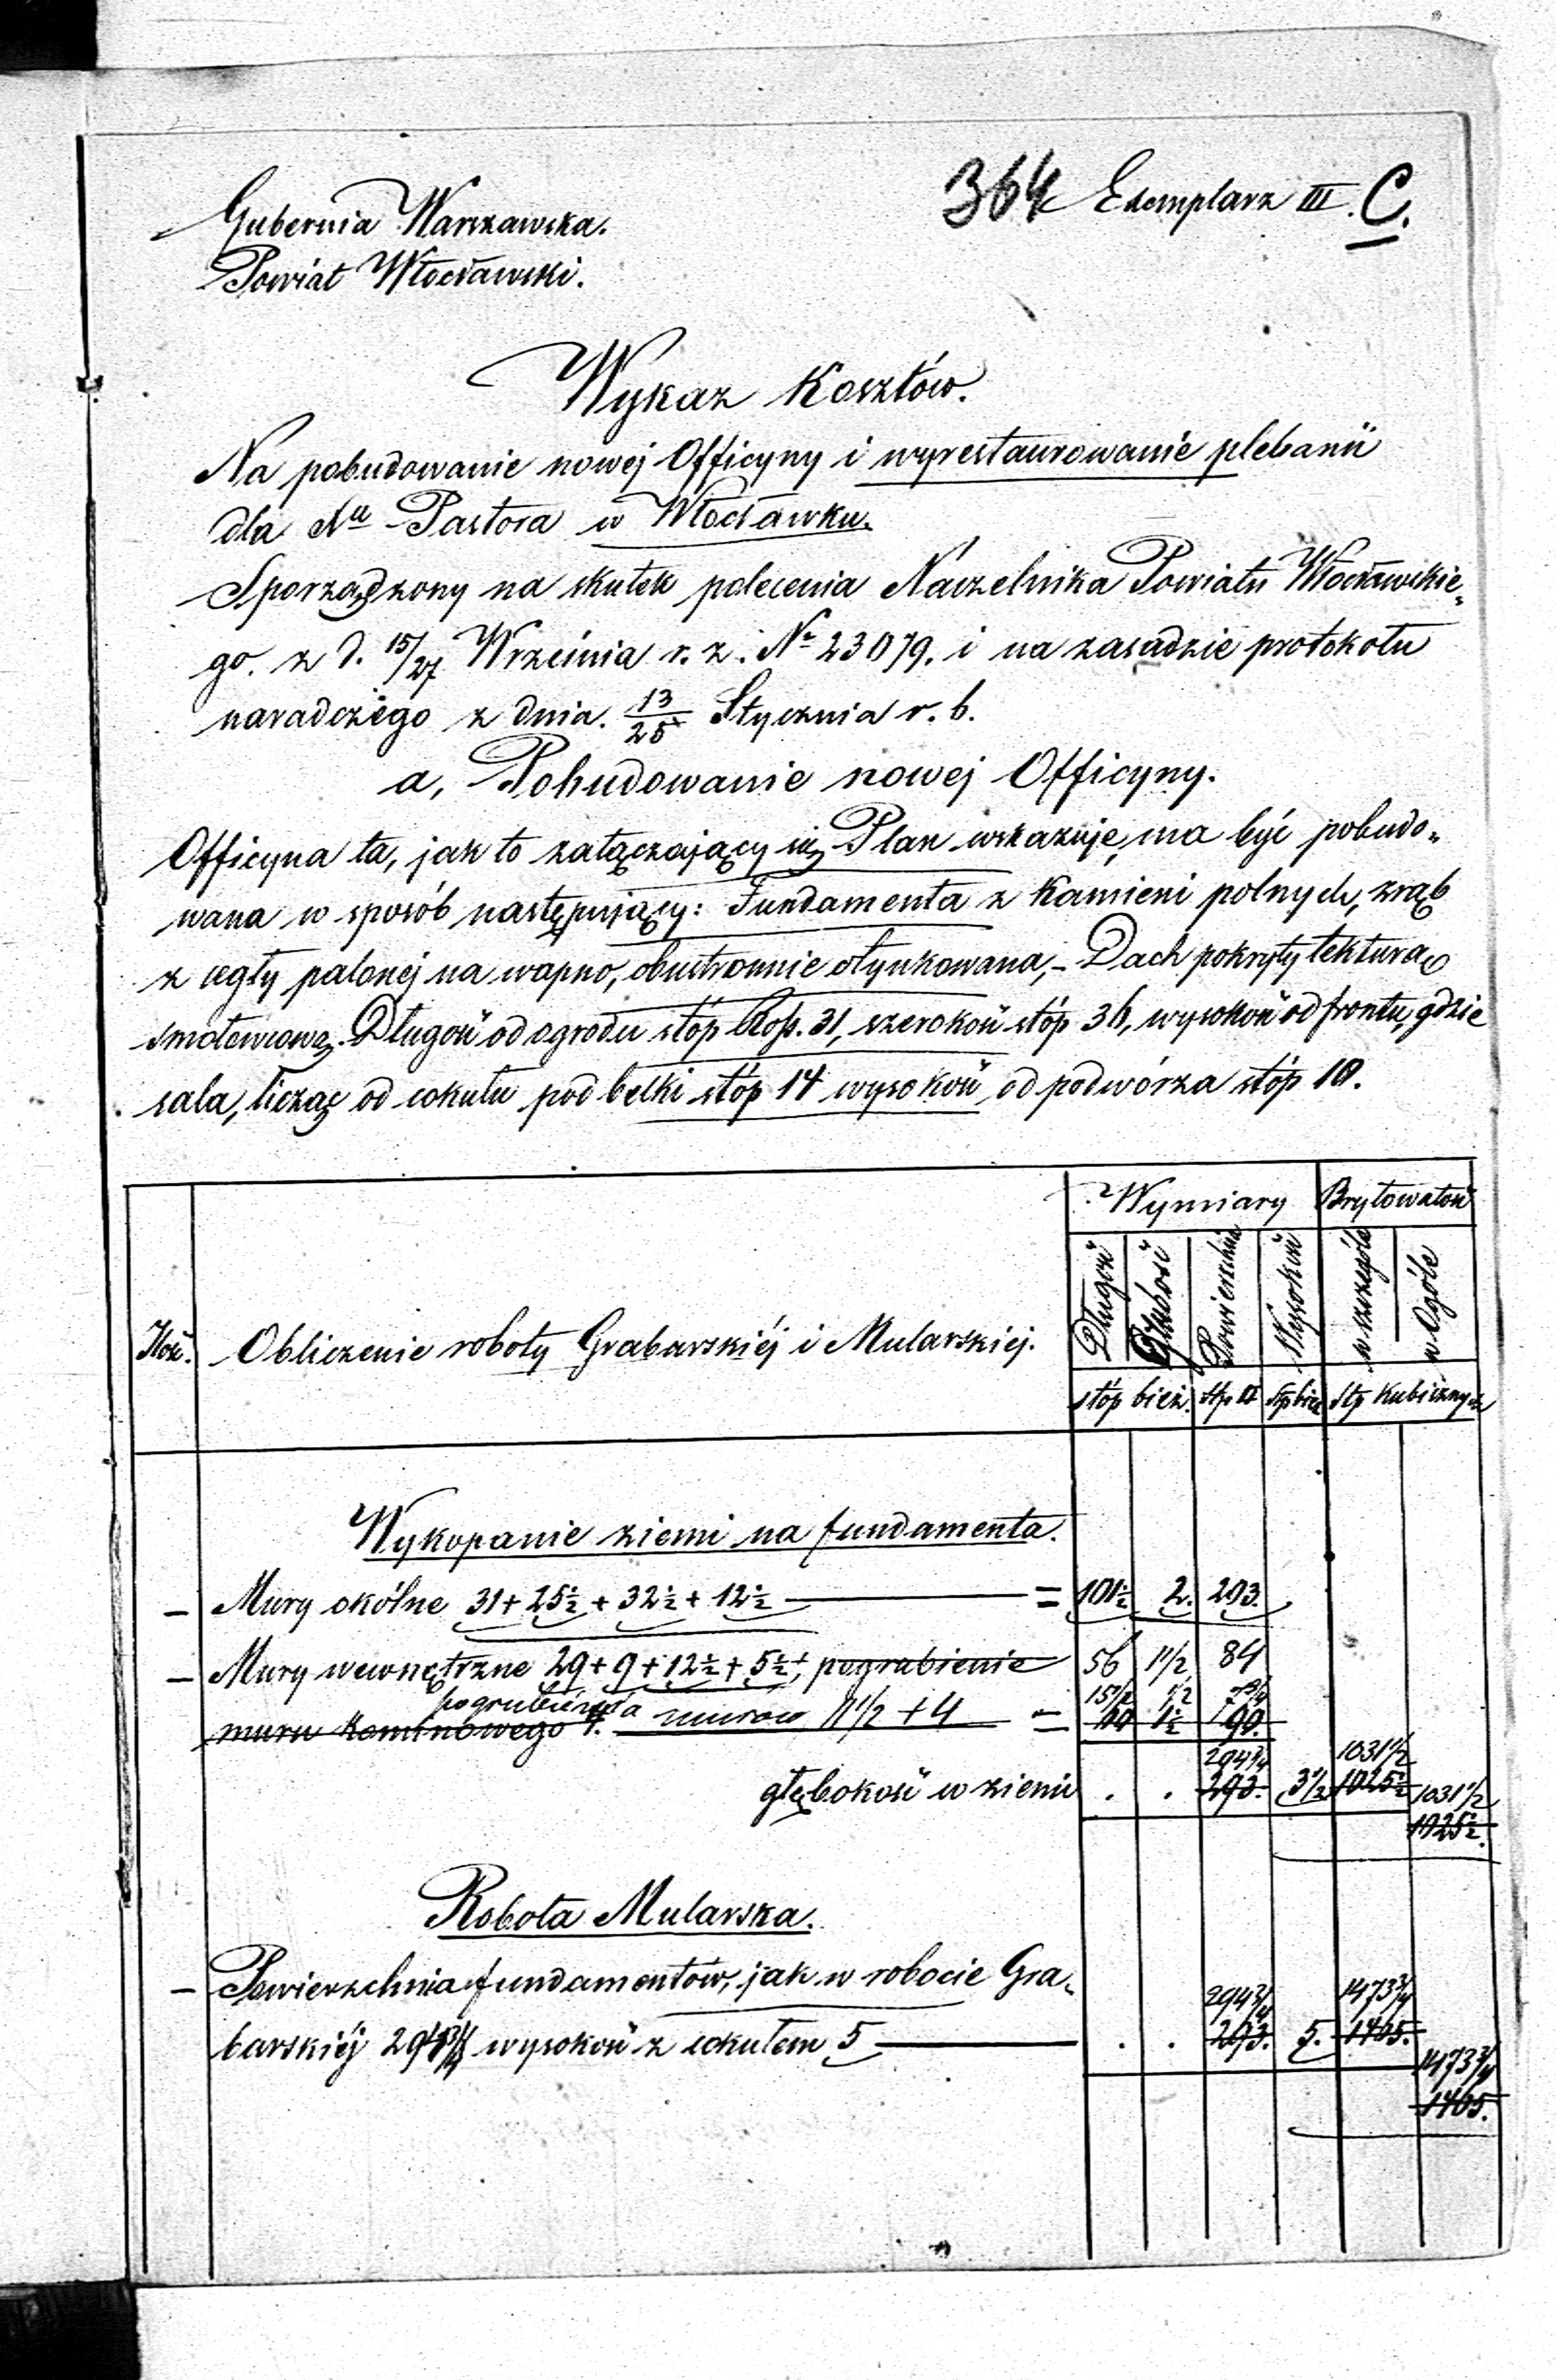 364 Exemplarz III. C.
Gubernia Warszawska.
Powiat Włocławski.
Wykaz Kosztów.
Na pobudowanie nowej Officyny i wyrestaurowanie plebanii
dla Pastora w Włocławku.
Sporządzony na skutek polecenia Naczelnika Powiatu Włocławskie-
go. z d. 15/27 Września r. z. No 23079. i na zasadzie protokołu
naradczego z dnia. 13/25 Stycznia r. b.
a, Pobudowanie nowej Officyny.
Officyna ta, jak to załączający się Plan wskazuje, ma być pobudo-
wana w sposób następujący: Fundamenta z Kamieni polnych, zrąb
z cegły palonej na wapno, obustronnie otynkowana, - Dach pokryty tekturą
smołowcową. Długość od ogrodu stóp Ross. 31, szerokość stóp 36, wysokość od frontu, gdzie
sala, licząc od cokułu pod belki stóp 14 wysokość od podwórza stóp 10.
Wymiary Brytowatość
Ilość. Obliczenie roboty Grabarskiéj i Mularskiej. Długość Grubość Powierzchnia Wysokość w szczególe w Ogóle
stóp bież. Stp □ Stp bież Stp Kubicznych
Wykopanie ziemi na fundamenta.
- Mury okólne 31 + 25½ + 32½ + 12½ = 101½ 2. 203.
- Mury wewnętrzne 29 + 9 + 12½ + 5½ + pogrubienie 56 1½ 84
pogrubienia 15½ ½ 7¾
muru kominowego 4. murów 11½ + 4 = 1½ 90.
294¾ 1031½
głębokość w ziemi . . 293. 3½ 1025½ 1031½
1025½.
Robota Mularska.
- Powierzchnia fundamentów, jak w robocie Gra- 294¾ 1473¾
barskiéj 294¾ wysokość z cokułem 5 . . 293. 5. 1465.
1473¾
1465.